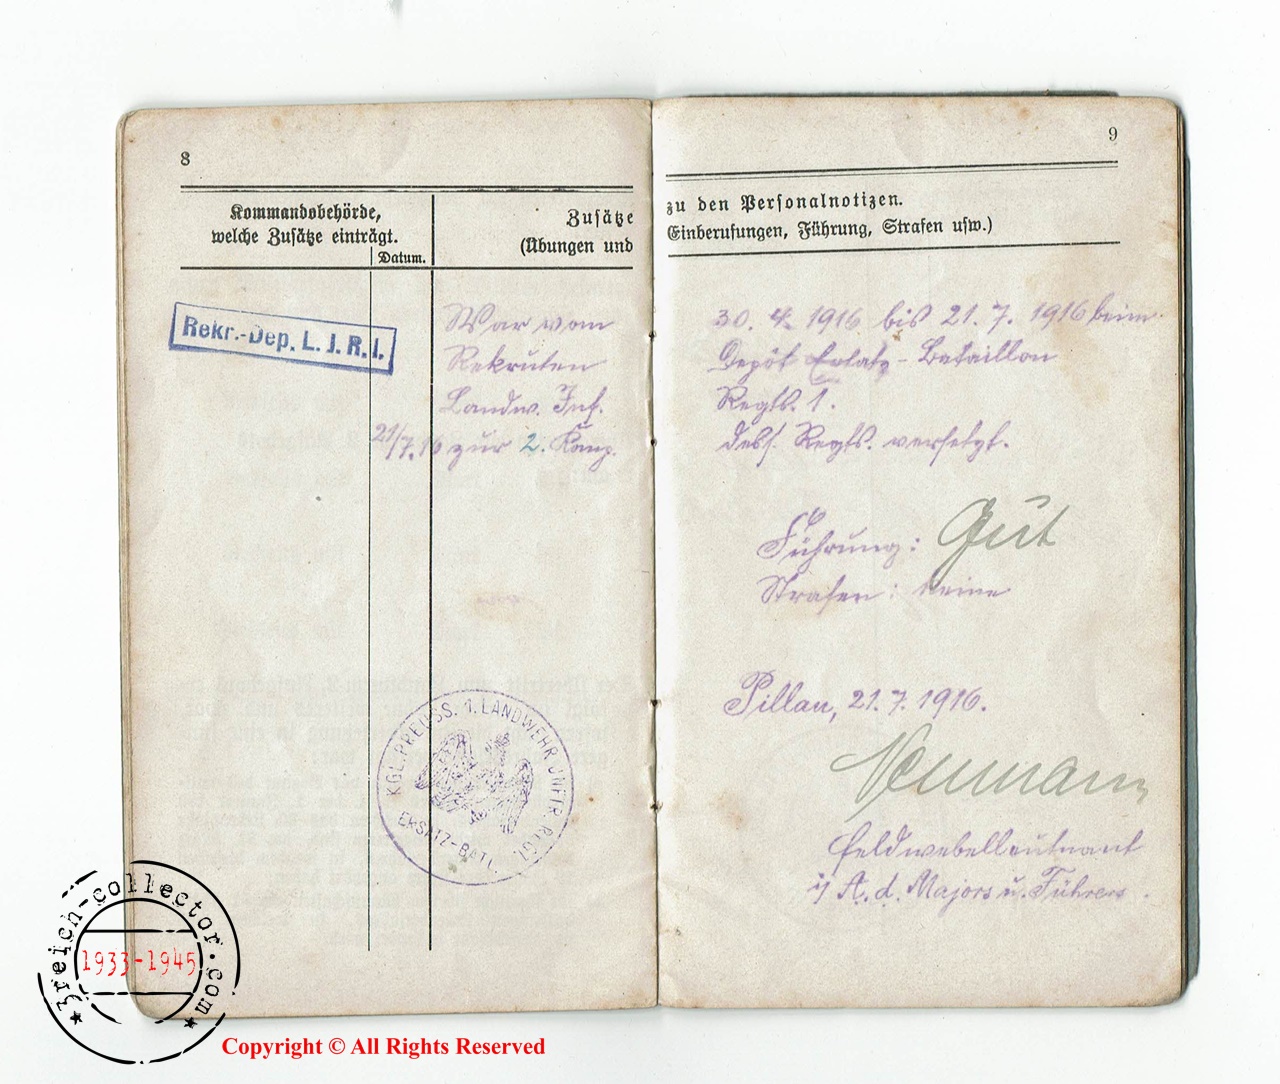 8
Kommandobehörde,
welche Zusätze einträgt.
Datum.
Zusätze
(Übungen und
Rekr.-Dep. L. I. R. 1.
War vom
Rekruten
Landw. Inf.
21/7.16 zur 2. Komp.
KGL. PREUSS. 1. LANDWEHR INFTR. REGT.
ERSATZ-BATL.
9
zu den Personalnotizen.
Einberufungen, Führung, Strafen usw.)
30. 4. 1916 bis 21. 7. 1916 beim
Depôt Ersatz-Bataillon
Regts. 1.
dess. Regts. versetzt.
Führung: Gut
Strafen: keine
Pillau, 21. 7. 1916.
Neumann
Feldwebelleutnant
i/ A. d. Majors u. Führers.
3reich-collector.com
1933-1945
Copyright © All Rights Reserved